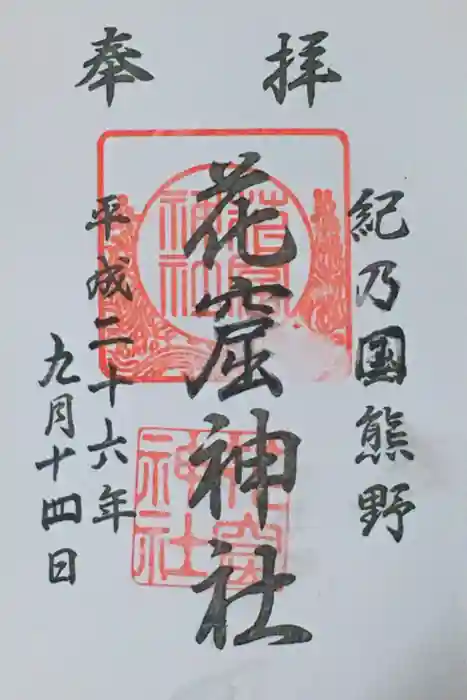 奉拝
紀乃国熊野
花窟神社
平成二十六年
九月十四日
花窟神社
花窟神社